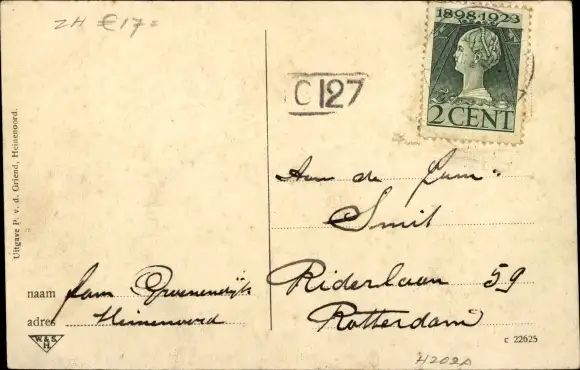 ZH €17=
1898-1923
2 CENT
C 127
Uitgave P. v. d. Griend, Heinenoord.
Aan de fam:
Smit
Riderlaan 59
Rotterdam
naam fam Groenendijk
adres Heinenoord
W. & S.
H
c 22625
H202A